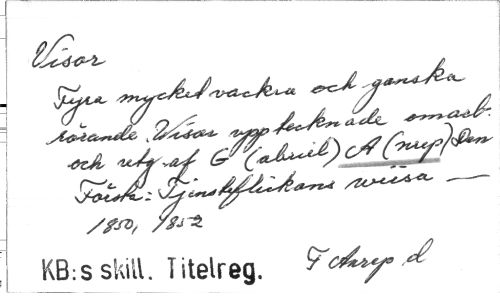 Visor
Fyra mycket vackra och ganska
rörande Visor upptecknade omarb.
och utg. af G (abriel) A (nrep) Den
Första: Tjensteflickans wiisa —
1850, 1852
F Anrep d
KB:s skill. Titelreg.